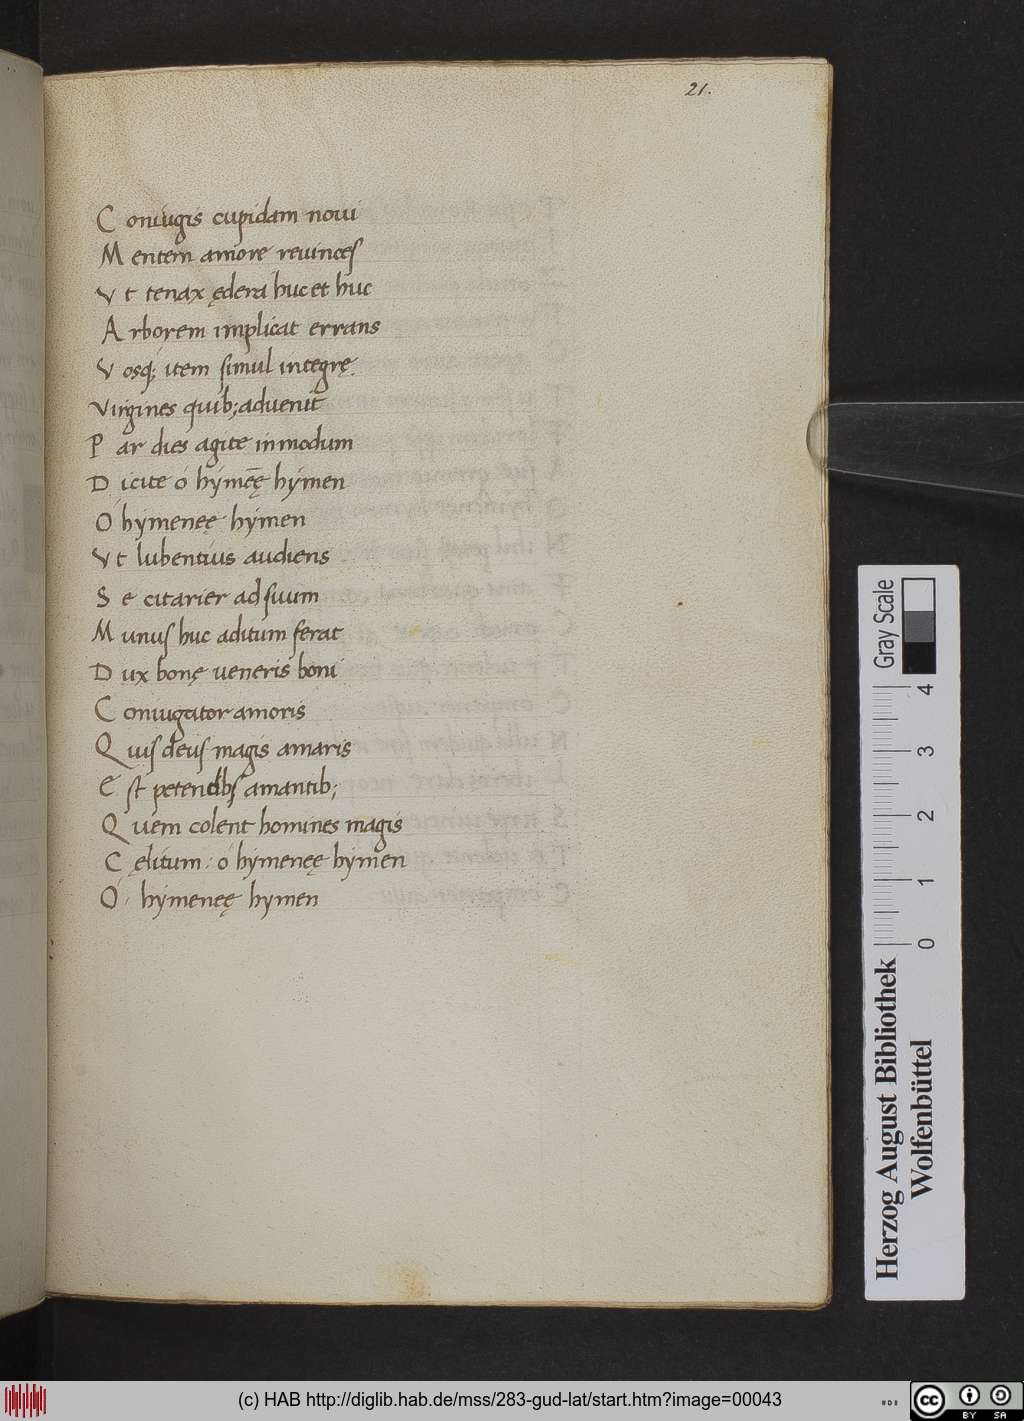 21.
Coniugis cupidam noui
Mentem amore reuinces
Vt tenax ędera huc et huc
Arborem implicat errans
Vosq; item simul integrę.
Virgines quib; aduenit
Par dies agite in modum
Dicite ó hymēę hymen
O hymeneę hymen
Vt lubentius audiens
Se citarier ad suum
Munus huc aditum ferat
Dux bonę ueneris boni
Coniugator amoris
Quis deus magis amaris
Est petendbs amantib;
Quem colent homines magis
Cęlitum: ó hymeneę hymen
O hymeneę hymen
Gray Scale
4
3
2
1
0
Herzog August Bibliothek
Wolfenbüttel
(c) HAB http://diglib.hab.de/mss/283-gud-lat/start.htm?image=00043
cc
BY SA